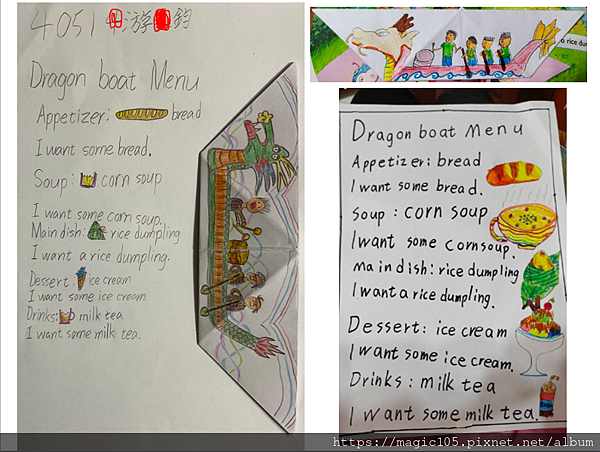 4051 游 鈞
Dragon boat Menu
Appetizer: bread
I want some bread.
Soup: corn soup
I want some corn soup.
Main dish: rice dumpling
I want a rice dumpling.
Dessert: ice cream
I want some ice cream.
Drinks: milk tea
I want some milk tea.
a rice dum
Dragon boat Menu
Appetizer: bread
I want some bread.
Soup: corn soup
I want some corn soup.
main dish: rice dumpling
I want a rice dumpling.
Dessert: ice cream
I want some ice cream.
Drinks: milk tea
I want some milk tea.
https://magic105.pixnet.net/album